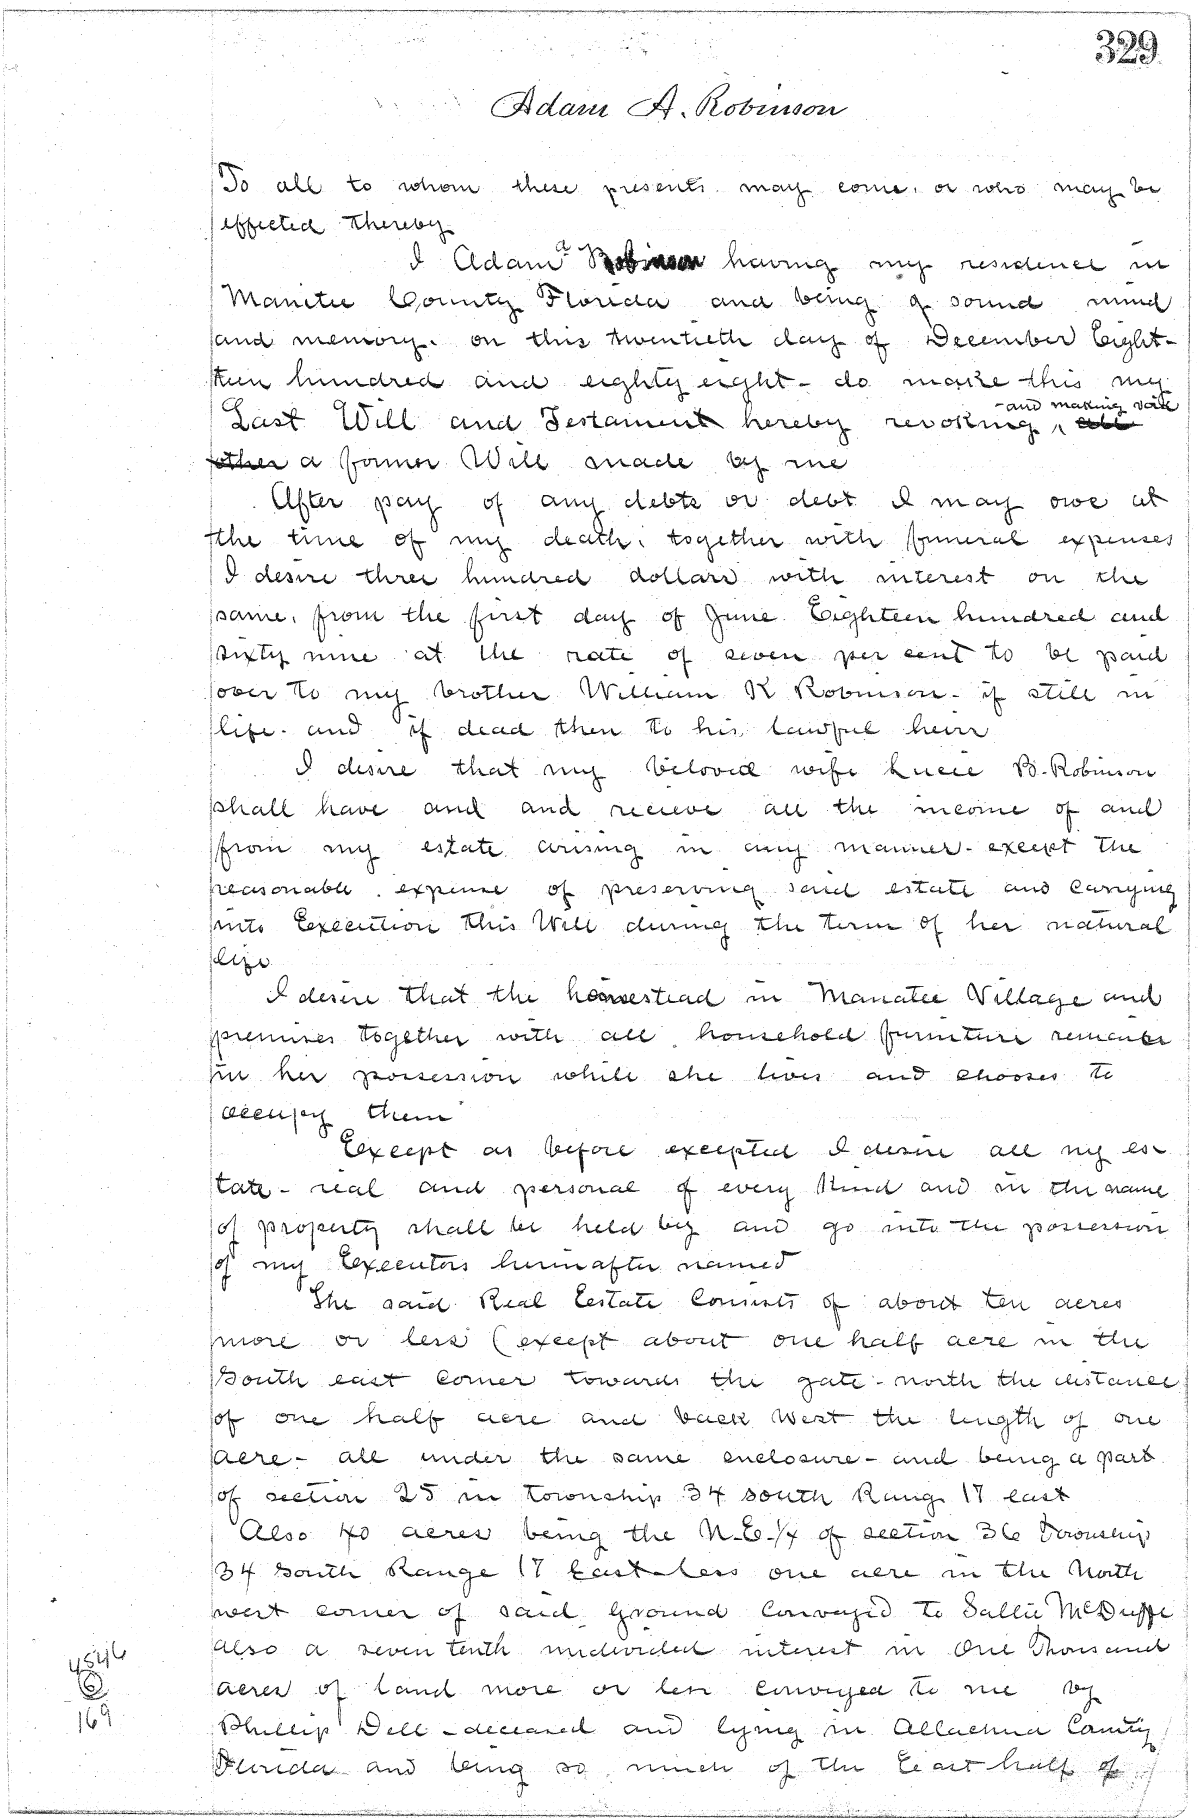 329
Adam A. Robinson
To all to whom these presents may come, or who may be
effected thereby
I Adam a Robinson having my residence in
Manitee County Florida and being of sound mind
and memory. on this twentieth day of December Eight-
teen hundred and eighty eight - do make this my
-and making void
Last Will and Testament hereby revoking, all
other a former Will made by me
After pay of any debts or debt I may owe at
the time of my death, together with funeral expenses
I desire three hundred dollars with interest on the
same, from the first day of June Eighteen hundred and
sixty nine at the rate of seven per cent to be paid
over to my brother William K Robinson - if still in
life - and if dead then to his lawful heirs
I desire that my beloved wife Lucie B. Robinson
shall have and and recieve all the income of and
from my estate arising in any manner - except the
reasonable expense of preserving said estate and carrying
into Execution this Will during the term of her natural
life
I desire that the homestead in Manatee Village and
premises together with all household furniture remain
in her possession while she lives and chooses to
occupy them
Except as before excepted I desire all my es-
tate - real and personal of every Kind and in the name
of property shall be held by and go into the possession
of my Executors hereinafter named
The said Real Eestate Consists of about ten acres
more or less (except about one half acre in the
South east Corner towards the gate - north the distance
of one half acre and back West the length of one
acre - all under the same enclosure - and being a part
of section 25 in township 34 south Range 17 east
Also 40 acres being the N.E.1/4 of section 36 Township
34 South Range 17 East less one acre in the North
west corner of said ground Conveyed to Sallie McDuffe
also a seven tenth undivided interest in One Thousand
acres of land more or less conveyed to me by
Phillip Dell - deceased and lying in Allachua County
Florida and being so much of the East half of
4546
6
169